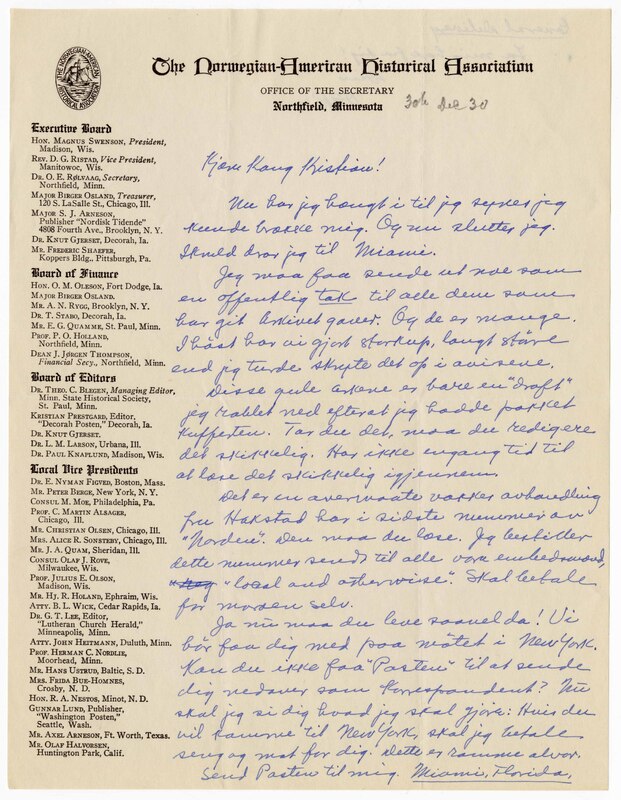 THE NORWEGIAN-AMERICAN HISTORICAL ASSOCIATION
The Norwegian-American Historical Association
OFFICE OF THE SECRETARY
Northfield, Minnesota
30te Dec 30
Executive Board
HON. MAGNUS SWENSON, President,
Madison, Wis.
REV. D. G. RISTAD, Vice President,
Manitowoc, Wis.
DR. O. E. RØLVAAG, Secretary,
Northfield, Minn.
MAJOR BIRGER OSLAND, Treasurer,
120 S. LaSalle St., Chicago, Ill.
MAJOR S. J. ARNESON,
Publisher "Nordisk Tidende"
4808 Fourth Ave., Brooklyn, N. Y.
DR. KNUT GJERSET, Decorah, Ia.
MR. FREDERIC SHAEFER,
Koppers Bldg., Pittsburgh, Pa.
Board of Finance
HON. O. M. OLESON, Fort Dodge, Ia.
MAJOR BIRGER OSLAND.
MR. A. N. RYGG, Brooklyn, N. Y.
DR. T. STABO, Decorah, Ia.
MR. E. G. QUAMME, St. Paul, Minn.
PROF. P. O. HOLLAND,
Northfield, Minn.
DEAN J. JØRGEN THOMPSON,
Financial Secy., Northfield, Minn.
Board of Editors
DR. THEO. C. BLEGEN, Managing Editor,
Minn. State Historical Society,
St. Paul, Minn.
KRISTIAN PRESTGARD, Editor,
"Decorah Posten," Decorah, Ia.
DR. KNUT GJERSET,
DR. L. M. LARSON, Urbana, Ill.
DR. PAUL KNAPLUND, Madison, Wis.
Local Vice Presidents
DR. E. NYMAN FIGVED, Boston, Mass.
MR. PETER BERGE, New York, N. Y.
CONSUL M. MOE, Philadelphia, Pa.
PROF. C. MARTIN ALSAGER,
Chicago, Ill.
MR. CHRISTIAN OLSEN, Chicago, Ill.
MRS. ALICE R. SONSTEBY, Chicago, Ill.
MR. J. A. QUAM, Sheridan, Ill.
CONSUL OLAF J. ROVE,
Milwaukee, Wis.
PROF. JULIUS E. OLSON,
Madison, Wis.
MR. HJ. R. HOLAND, Ephraim, Wis.
ATTY. B. L. WICK, Cedar Rapids, Ia.
DR. G. T. LEE, Editor,
"Lutheran Church Herald,"
Minneapolis, Minn.
ATTY. JOHN HEITMANN, Duluth, Minn.
PROF. HERMAN C. NORDLIE,
Moorhead, Minn.
MR. HANS USTRUD, Baltic, S. D.
MRS. FRIDA BUE-HOMNES,
Crosby, N. D.
HON. R. A. NESTOS, Minot, N. D.
GUNNAR LUND, Publisher,
"Washington Posten,"
Seattle, Wash.
MR. AXEL ARNESON, Ft. Worth, Texas.
MR. OLAF HALVORSEN,
Huntington Park, Calif.
Kjære Kong Kristian!
Nu har jeg hængt i til jeg synes jeg
kunde brække mig. Og nu slutter jeg.
Ikveld drar jeg til Miami.
Jeg maa faa sende ut noe som
en offentlig tak til alle dem som
har git Arkivet gaver. Og de er mange.
I høst har vi gjort storkup, langt større
end jeg turde skryte det op i avisene.
Disse gule arkene er bare en "draft"
jeg rablet ned efterat jeg hadde pakket
kufferten. Tar du det, maa du redigere
det skikkelig. Har ikke engang tid til
at læse det skikkelig igjennem.
Det er en overmaate vakker avhandling
fru Hakstad har i sidste nummer av
"Norden". Den maa du læse. Jeg bestiller
dette nummer sendt til alle vore embedsmænd,
"local and otherwise". Skal betale
for moroen selv.
Ja nu maa du leve saavel da! Vi
bør faa dig med paa møtet i New York.
Kan du ikke faa "Posten" til at sende
dig nedover som korrespondent? Nu
skal jeg si dig hvad jeg skal gjøre: Hvis du
vil komme til New York, skal jeg betale
seng og mat for dig. Dette er ramme alvor.
Send Posten til mig. Miami, Florida.